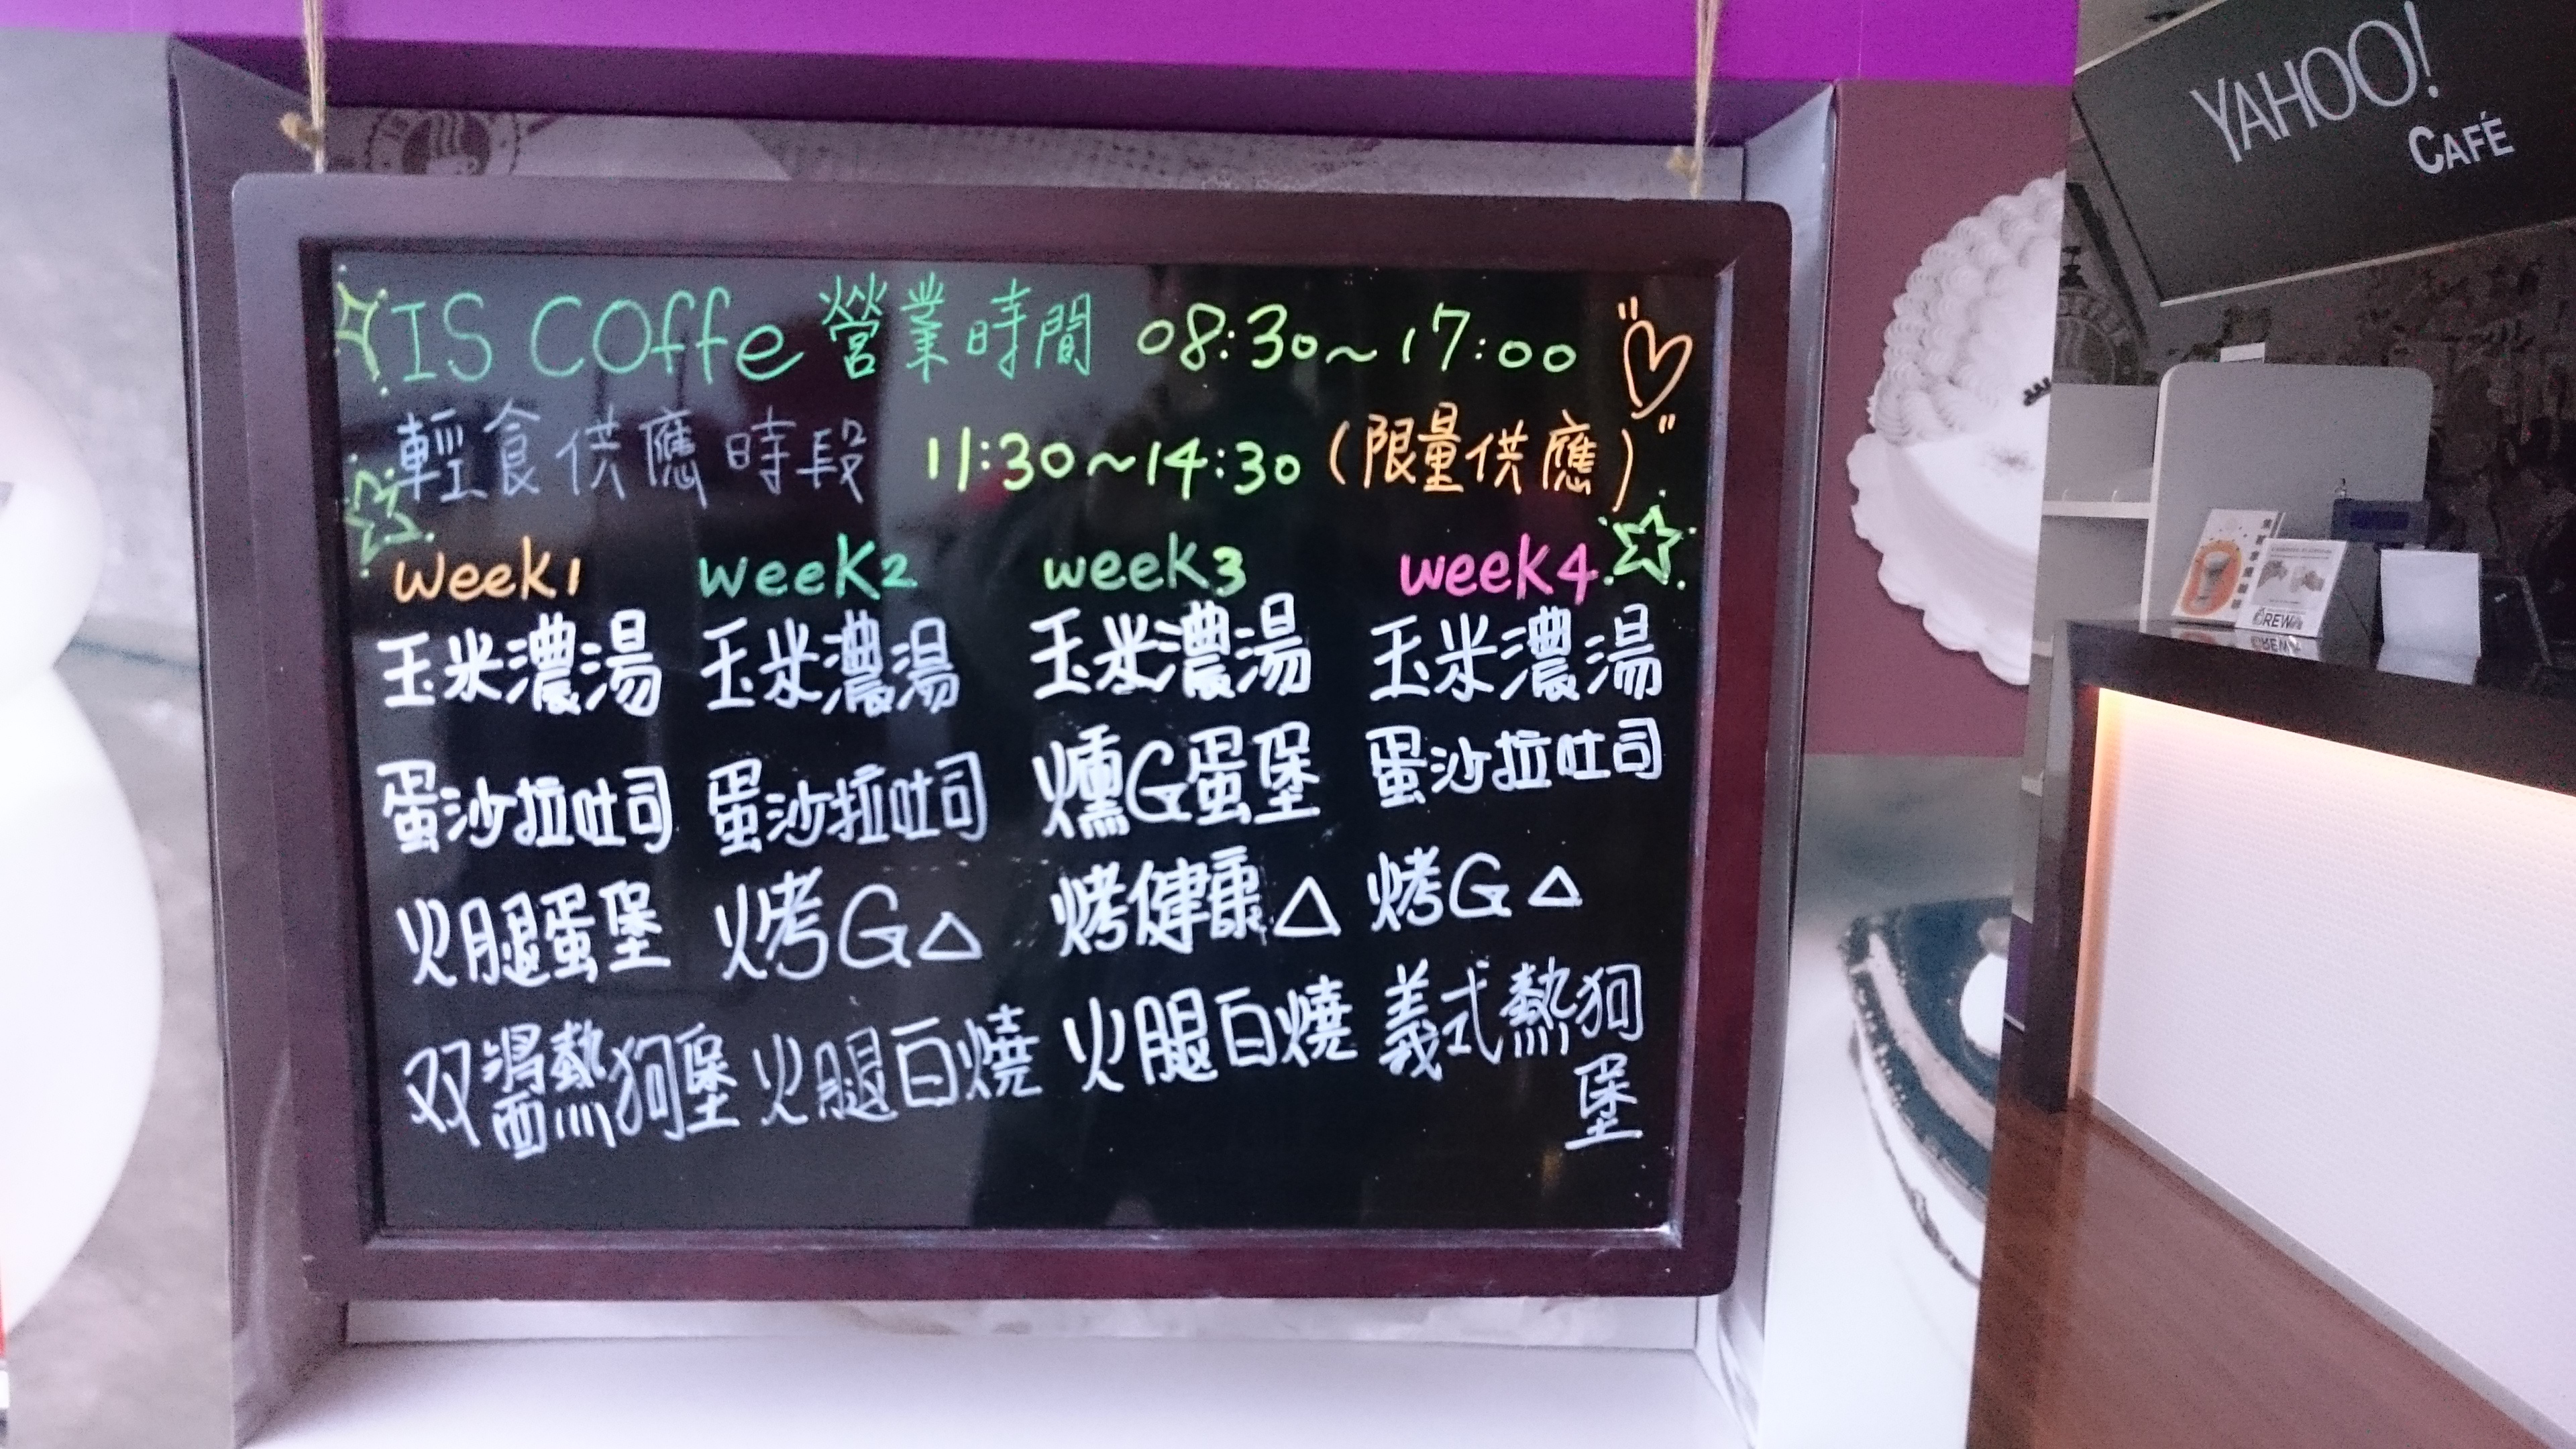 YAHOO!
CAFÉ
IS COffe 營業時間 08:30~17:00
輕食供應時段 11:30~14:30 (限量供應)
week1 week2 week3 week4
玉米濃湯 玉米濃湯 玉米濃湯 玉米濃湯
蛋沙拉吐司 蛋沙拉吐司 燻G蛋堡 蛋沙拉吐司
火腿蛋堡 烤G△ 烤健康△ 烤G△
双醬熱狗堡 火腿白燒 火腿白燒 義式熱狗
堡